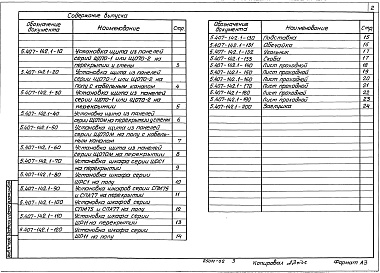 2
Содержание выпуска
Обозначение документа
Наименование
Стр.
5.407-142.1-10
Установка щита из панелей
серий ЩО70-1 или ЩО70-2 на
перекрытии у стены
3
5.407-142.1-20
Установка щита из панелей
серии ЩО70-1 или ЩО70-2 на
полу с кабельным каналом
4
5.407-142.1-30
Установка щита из панелей
серии ЩО70-1 или ЩО70-2 на
перекрытии
5
5.407-142.1-40
Установка щита из панелей
серии ЩО70М на перекрытии у стены
6
5.407-142.1-50
Установка щита из панелей
серии ЩО70М на полу с кабель-
ным каналом
7
5.407-142.1-60
Установка щита из панелей
серии ЩО70М на перекрытии
8
5.407-142.1-70
Установка шкафа серии
на перекрытии
9
5.407-142.1-80
Установка шкафа серии
на полу
10
5.407-142.1-90
Установка шкафов серии СПМ75
и СПА77 на перекрытии
11
5.407-142.1-100
Установка шкафов серии
СПМ75 и СПА77 на полу
12
5.407-142.1-110
Установка шкафа серии
на перекрытии
13
5.407-142.1-120
Установка шкафа серии
на полу
14
Обозначение документа
Наименование
Стр.
5.407-142.1-130
Подставка
15
5.407-142.1-131
16
5.407-142.1-132
Угольник
17
5.407-142.1-133
Скоба
17
5.407-142.1-140
Лист проходной
18
5.407-142.1-150
Лист проходной
19
5.407-142.1-160
Лист проходной
20
5.407-142.1-170
Лист проходной
21
5.407-142.1-180
Лист проходной
22
5.407-142.1-190
Лист проходной
23
5.407-142.1-200
Заглушка
24
3
Копировал
Формат А3